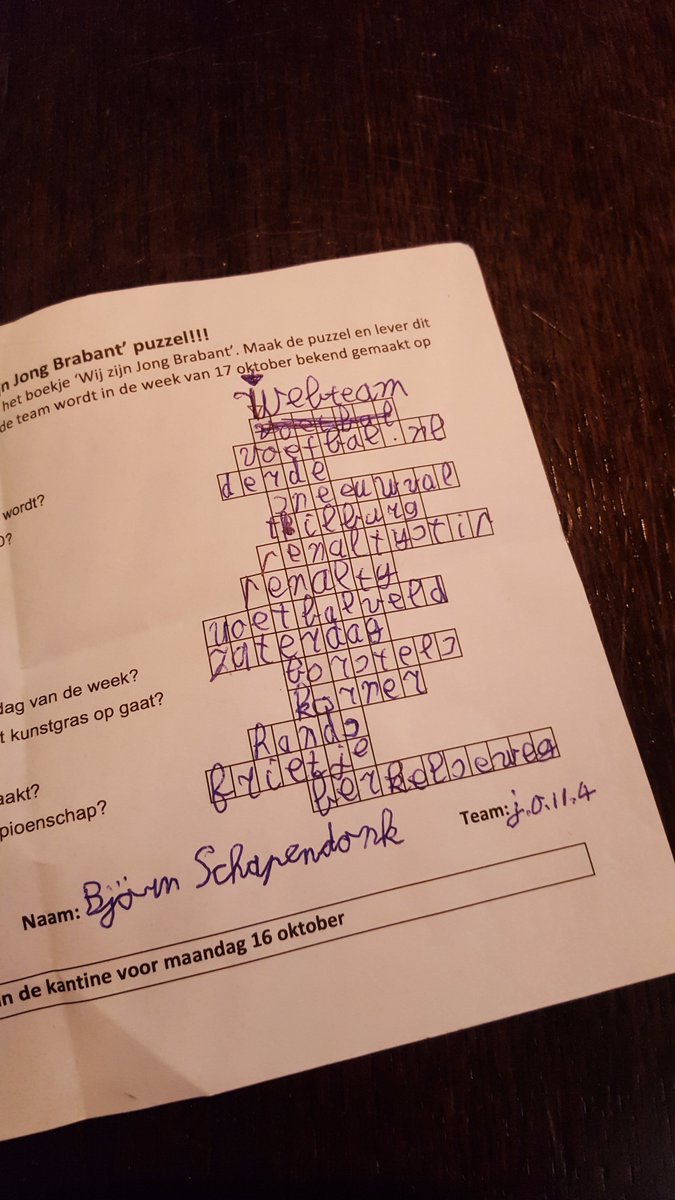 n Jong Brabant’ puzzel!!!
het boekje ‘Wij zijn Jong Brabant’. Maak de puzzel en lever dit
de team wordt in de week van 17 oktober bekend gemaakt op
Webteam
voetbal
voetbal.nl
derde
sneeuwval
tilburg
penaltystip
penalty
voetbalveld
zaterdag
borstels
korner
hands
frietje
berkelseweg
wordt?
o?
dag van de week?
t kunstgras op gaat?
aakt?
pioenschap?
Naam: Björn Schapendonk
Team: j.o.11.4
in de kantine voor maandag 16 oktober